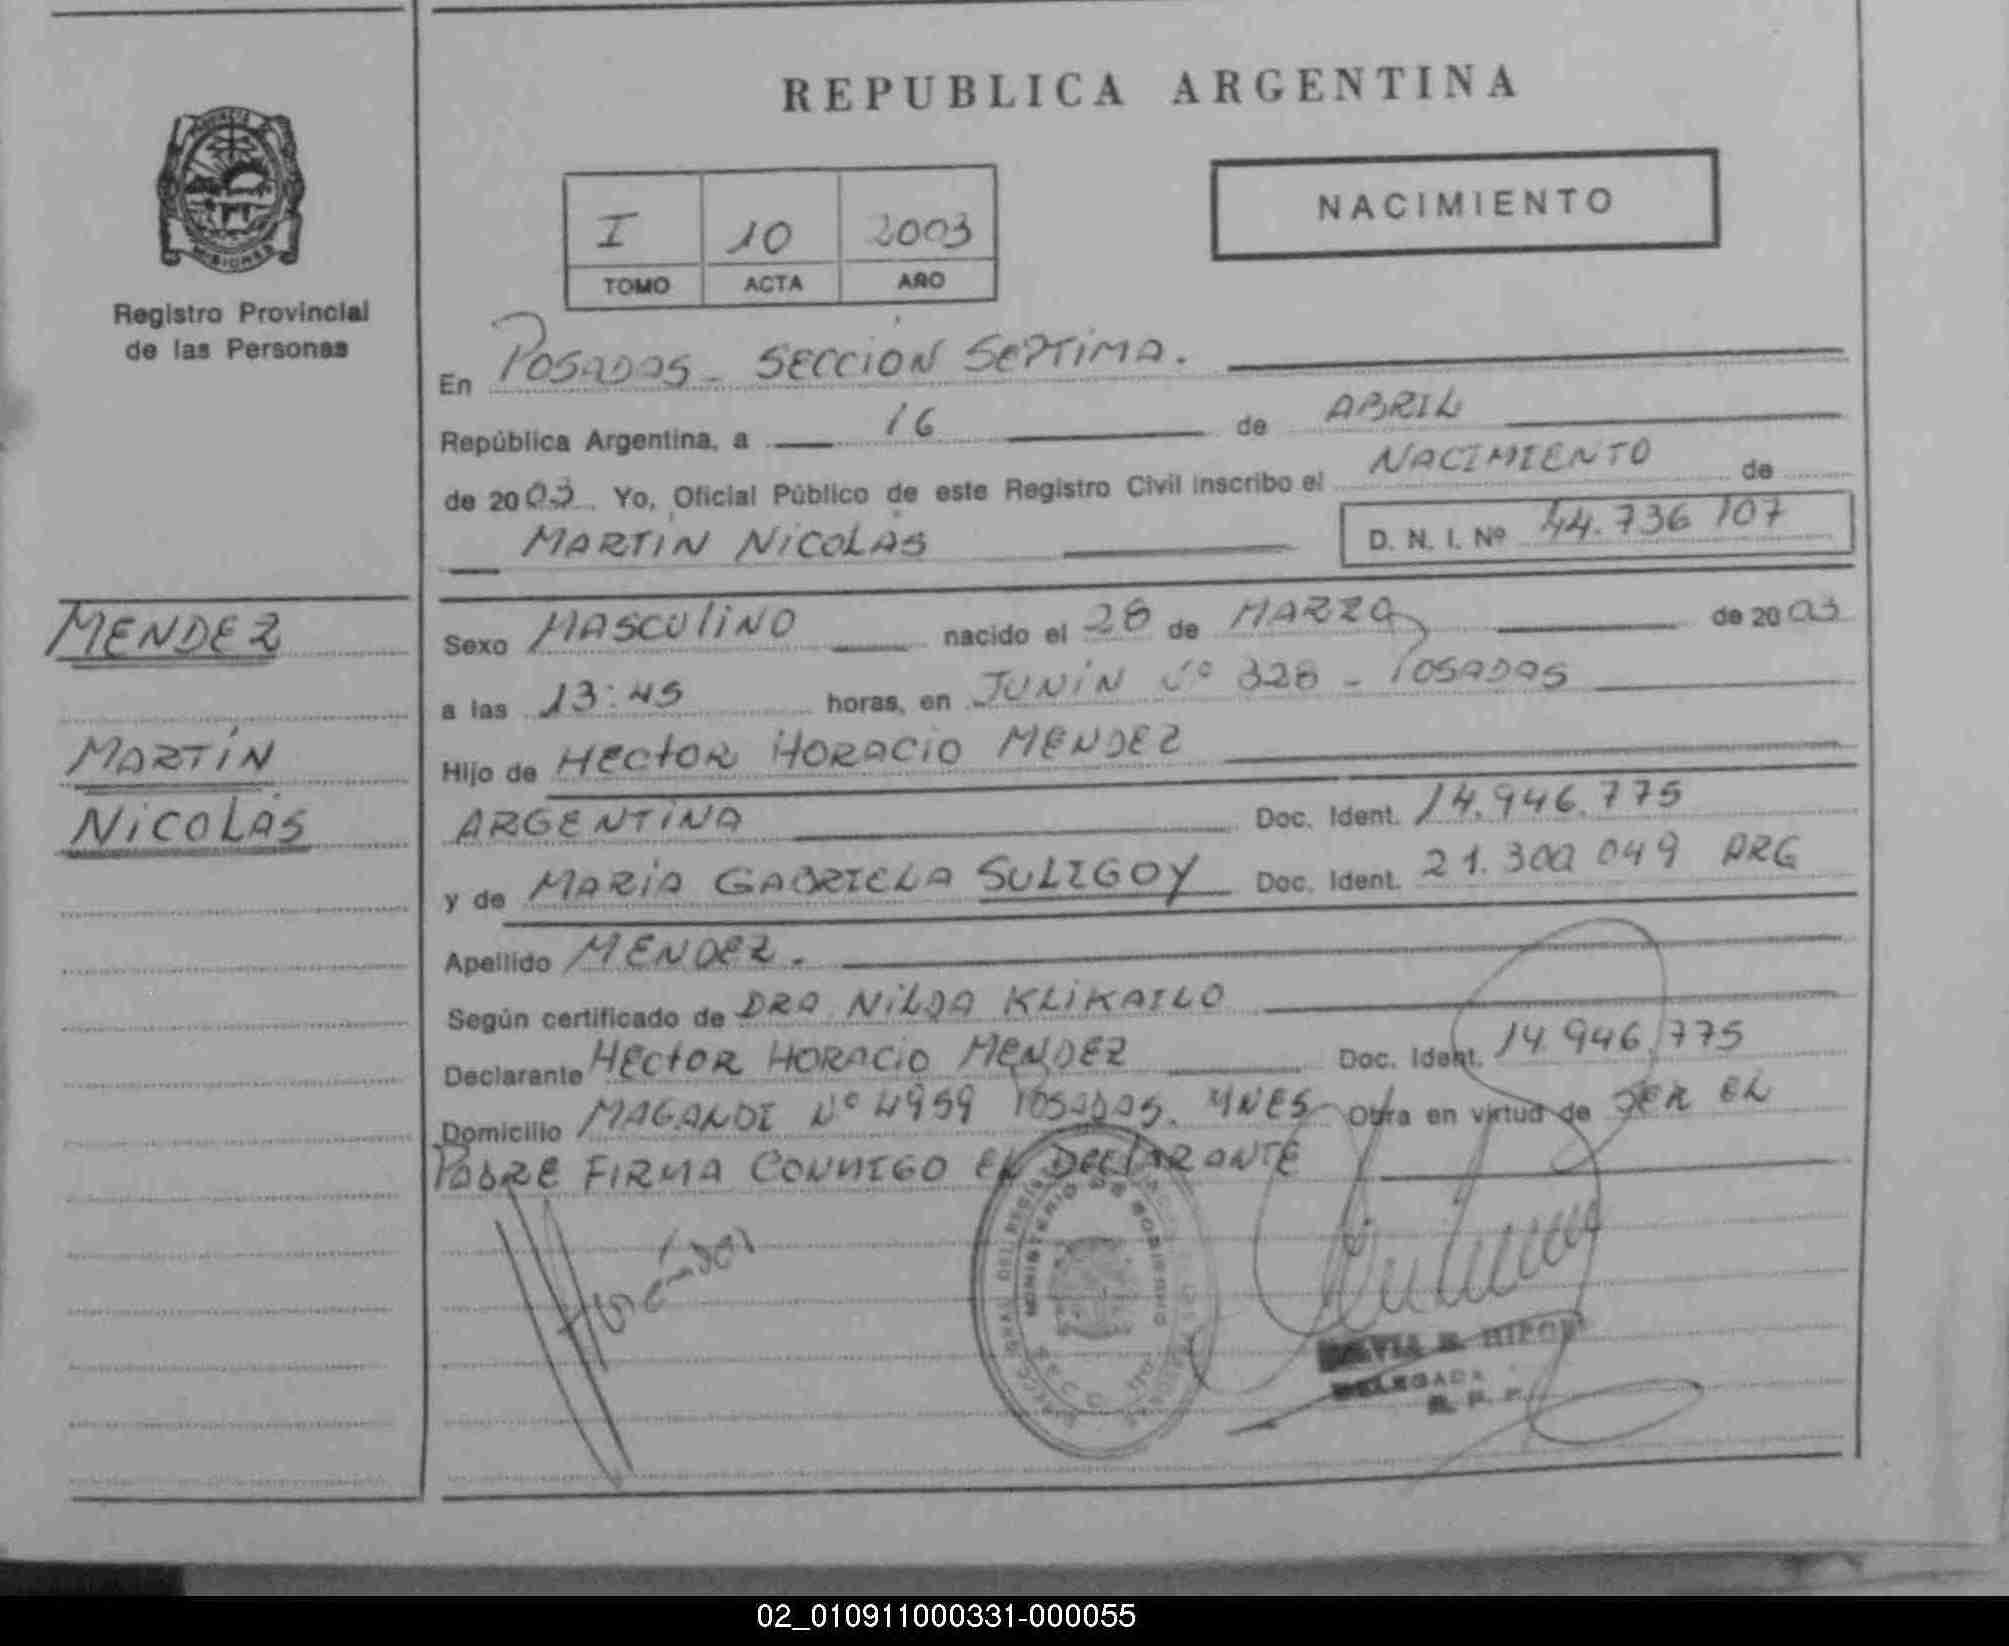 REPUBLICA ARGENTINA
NACIMIENTO
I 10 2003
TOMO ACTA AÑO
PROVINCIA DE
MISIONES
Registro Provincial
de las Personas
En POSADAS - SECCIÓN SEPTIMA.
República Argentina, a 16 de ABRIL
de 2003 Yo, Oficial Público de este Registro Civil inscribo el NACIMIENTO de
MARTÍN NICOLÁS D. N. I. Nº 44.736 107
MENDEZ
MARTÍN
NICOLÁS
Sexo MASCULINO nacido el 28 de MARZO de 2003
a las 13:45 horas, en JUNÍN Nº 328 - POSADAS
Hijo de HECTOR HORACIO MENDEZ
ARGENTINA Doc. Ident. 14.946.775
y de MARÍA GABRIELA SULIGOY Doc. Ident. 21.300 049 ARG
Apellido MENDEZ.
Según certificado de DRA NILDA KLIKAILO
Declarante HECTOR HORACIO MENDEZ Doc. Ident. 14.946.775
Domicilio Nº 4959 POSADAS. MNES Obra en virtud de SER EL
PADRE FIRMA CONMIGO EL DECLARANTE
MINISTERIO DE GOBIERNO
DELEGADA
R. P. P.
02_010911000331-000055